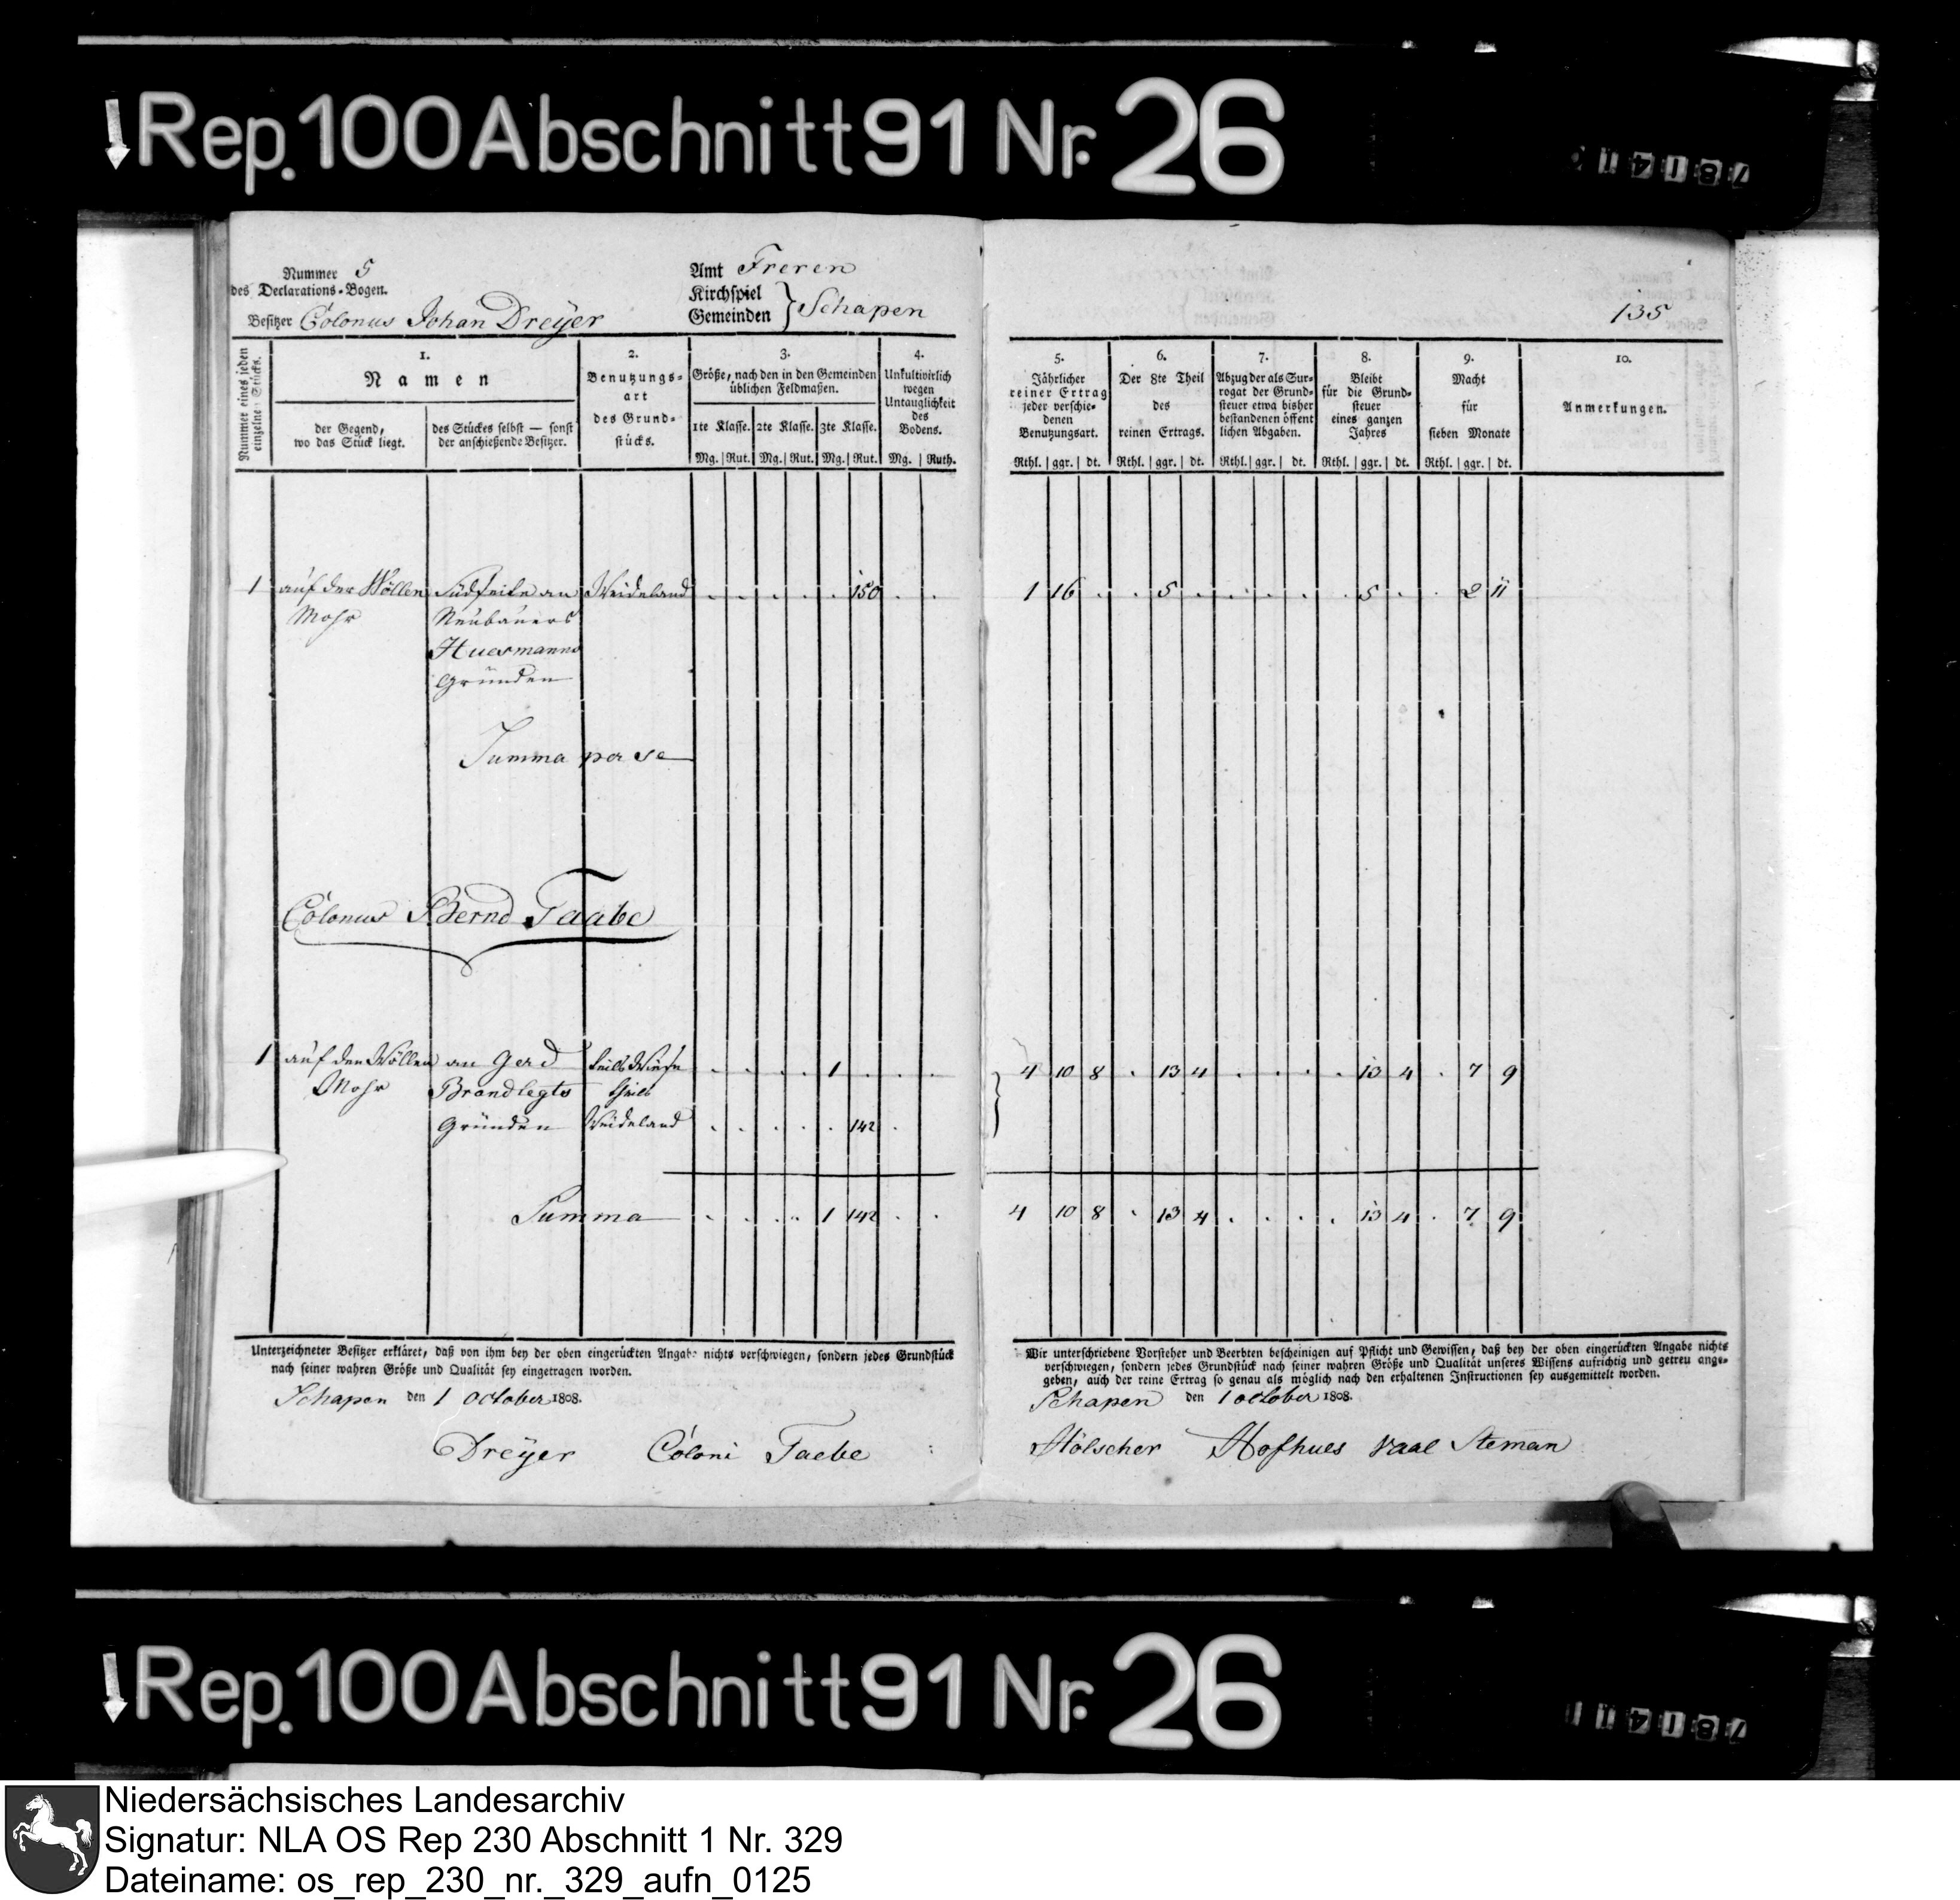 Rep. 100 Abschnitt 91 Nr. 26
Nummer 5
des Declarations-Bogen.
Besitzer Colonus Johan Dreÿer
Amt Freren
Kirchspiel
Gemeinden } Schapen
135
Nummer eines jeden
einzelnen Stücks.
1.
Namen
der Gegend,
wo das Stück liegt.
des Stückes selbst — sonst
der anschießende Besitzer.
2.
Benutzungs-
art
des Grund-
stücks.
3.
Größe, nach den in den Gemeinden
üblichen Feldmaßen.
1te Klasse. 2te Klasse. 3te Klasse.
Mg. Rut. Mg. Rut. Mg. Rut.
4.
Unkultivirlich
wegen
Untauglichkeit
des
Bodens.
Mg. Ruth.
5.
Jährlicher
reiner Ertrag
jeder verschie-
denen
Benutzungsart.
Rthl. ggr. dt.
6.
Der 8te Theil
des
reinen Ertrags.
Rthl. ggr. dt.
7.
Abzug der als Sur-
rogat der Grund-
steuer etwa bisher
bestandenen öffent
lichen Abgaben.
Rthl. ggr. dt.
8.
Bleibt
für die Grund-
steuer
eines ganzen
Jahres
Rthl. ggr. dt.
9.
Macht
für
sieben Monate
Rthl. ggr. dt.
10.
Anmerkungen.
1 auf der Wöllen Südseite an Weideland . . . . . 150 . . 1 16 . . 5 . . . . . 5 . . 2 11
Mohr Neubauers
Huesmanns
Gründen
Summa per se
Colonus Bernd Taabe
1 auf den Wöllen an Gerd theils Wiese . . . . 1 . . . 4 10 8 . 13 4 . . . . 13 4 . 7 9
Mohr Brandlegts theils
Gründen Weideland . . . . . 142 .
Summa . . . . 1 142 . . 4 10 8 . 13 4 . . . . 13 4 . 7 9
Unterzeichneter Besitzer erkläret, daß von ihm bey der oben eingerückten Angabe nichts verschwiegen, sondern jedes Grundstück
nach seiner wahren Größe und Qualität sey eingetragen worden.
Schapen den 1 October 1808.
Dreÿer Coloni Taebe
Wir unterschriebene Vorsteher und Beerbten bescheinigen auf Pflicht und Gewissen, daß bey der oben eingerückten Angabe nichts
verschwiegen, sondern jedes Grundstück nach seiner wahren Größe und Qualität unseres Wissens aufrichtig und getreu ange-
geben, auch der reine Ertrag so genau als möglich nach den erhaltenen Instructionen sey ausgemittelt worden.
Schapen den 1 october 1808.
Hölscher Hofhues Vaal Steman
Rep. 100 Abschnitt 91 Nr. 26
Niedersächsisches Landesarchiv
Signatur: NLA OS Rep 230 Abschnitt 1 Nr. 329
Dateiname: os_rep_230_nr._329_aufn_0125